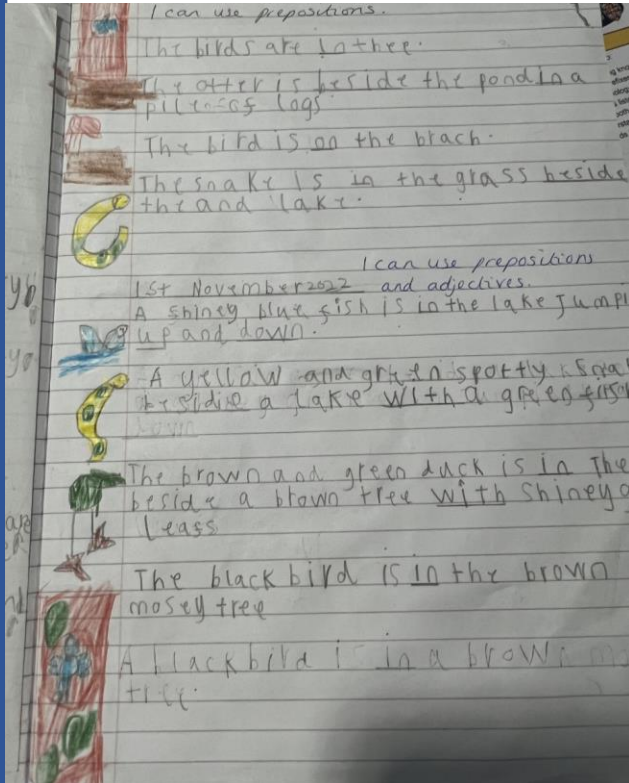 I can use prepositions.
The birds are in thee.
The otter is beside the pond in a
logs
The bird is on the brach.
The snake is in the grass beside
the and lake.
I can use prepositions
1st November 2022 and adjectives.
A shiney blue fish is in the lake Jumpi
up and down.
A yellow and green spottly sna
a lake with a green
The brown and green duck is in The
beside a brown tree with shiney g
leafs
The black bird is in the brown
mosey tree
A blackbird i in a brown mo
tree.